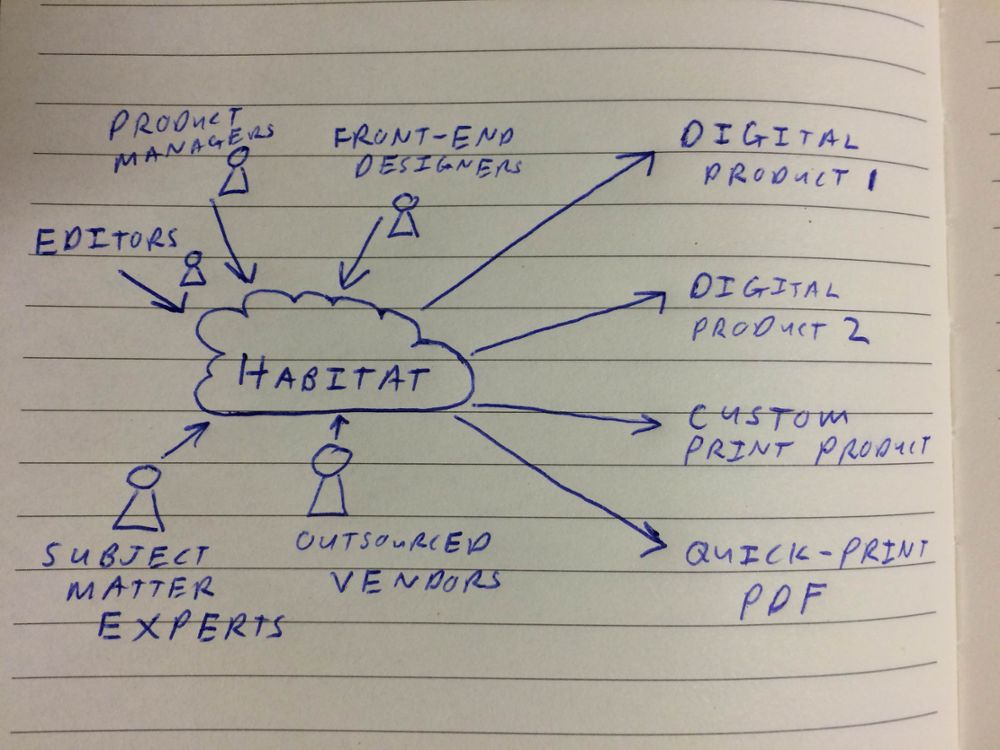 PRODUCT
MANAGERS
FRONT-END
DESIGNERS
EDITORS
HABITAT
SUBJECT
MATTER
EXPERTS
OUTSOURCED
VENDORS
DIGITAL
PRODUCT 1
DIGITAL
PRODUCT 2
CUSTOM
PRINT PRODUCT
QUICK-PRINT
PDF